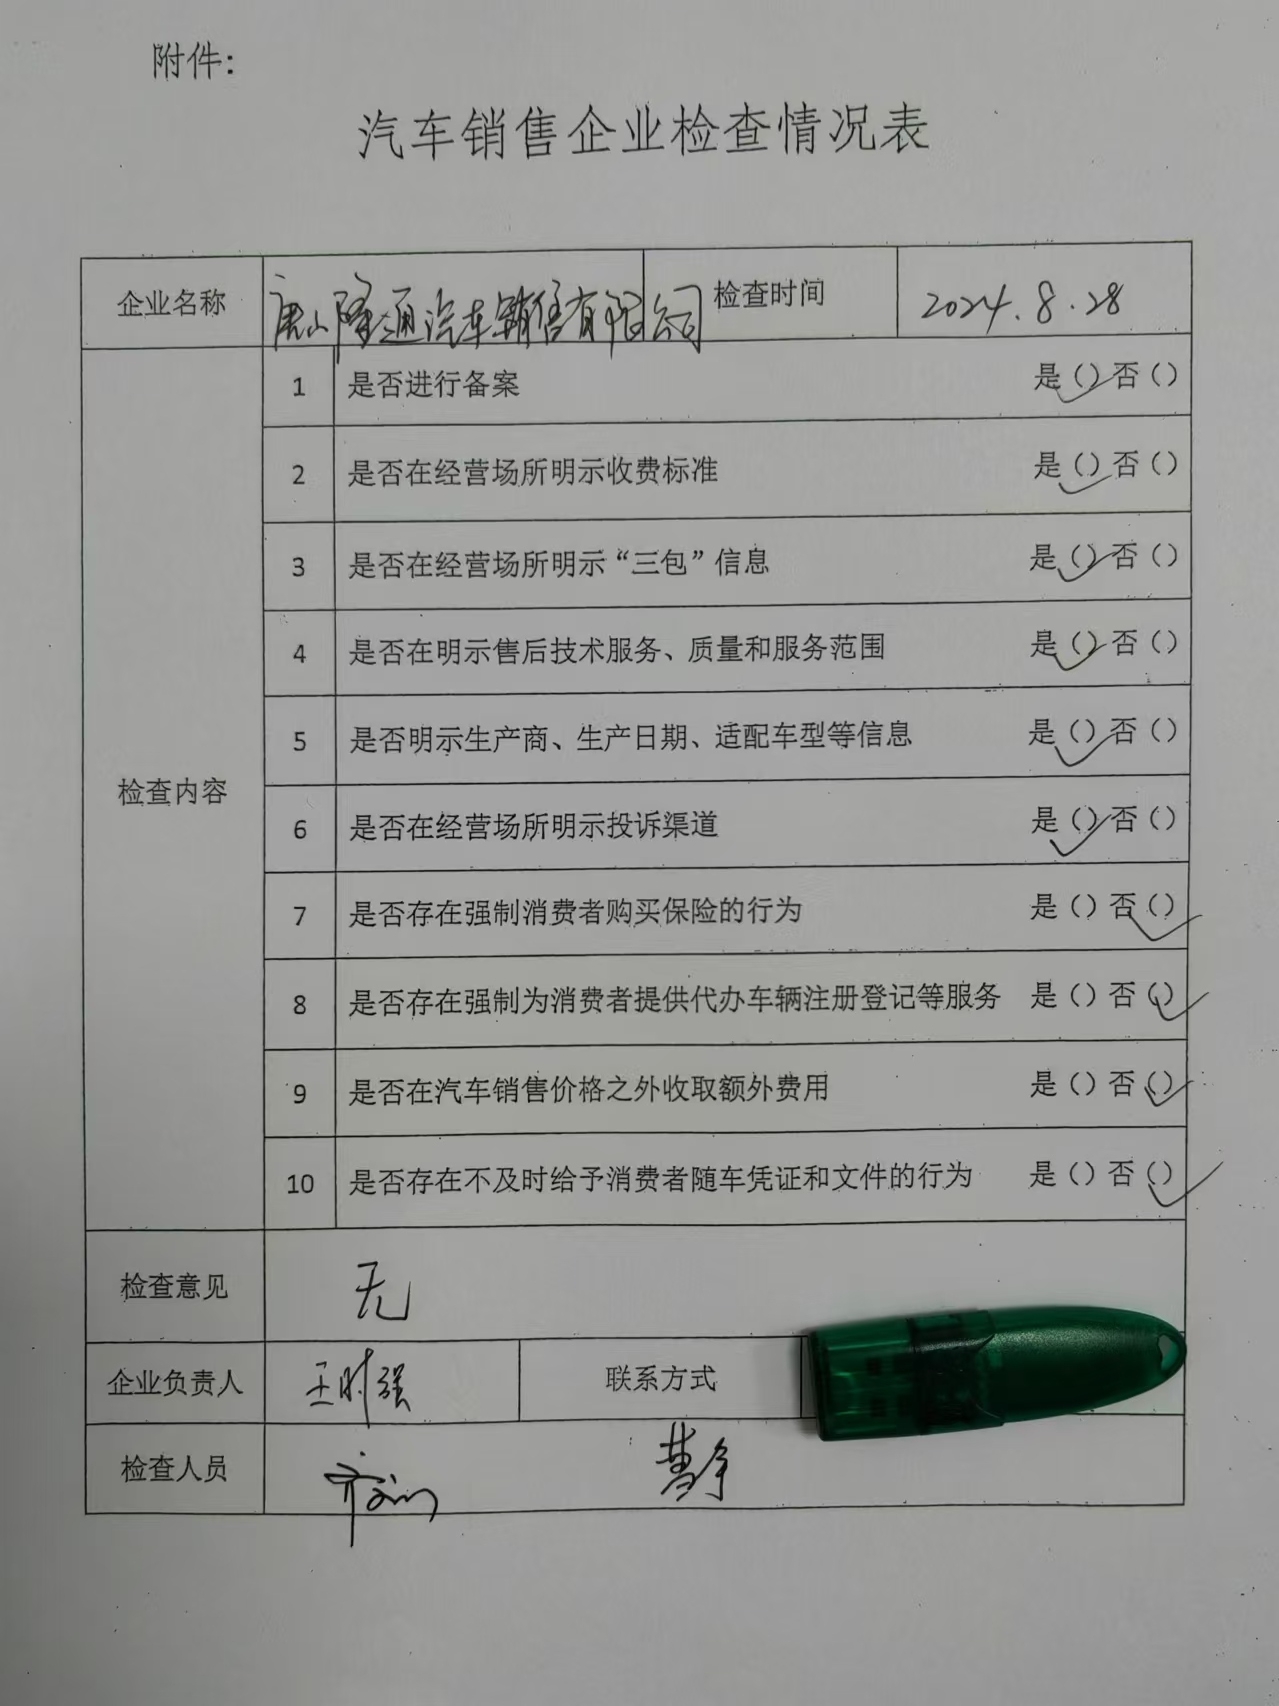 附件:
汽车销售企业检查情况表
企业名称 唐山隆通汽车销售有限公司 检查时间 2024.8.28
检查内容
1 是否进行备案 是(✓)否()
2 是否在经营场所明示收费标准 是(✓)否()
3 是否在经营场所明示“三包”信息 是(✓)否()
4 是否在明示售后技术服务、质量和服务范围 是(✓)否()
5 是否明示生产商、生产日期、适配车型等信息 是(✓)否()
6 是否在经营场所明示投诉渠道 是(✓)否()
7 是否存在强制消费者购买保险的行为 是()否(✓)
8 是否存在强制为消费者提供代办车辆注册登记等服务 是()否(✓)
9 是否在汽车销售价格之外收取额外费用 是()否(✓)
10 是否存在不及时给予消费者随车凭证和文件的行为 是()否(✓)
检查意见 无
企业负责人 王时强 联系方式
检查人员